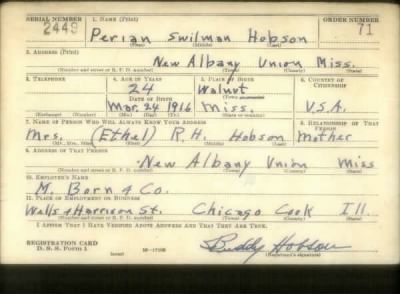 SERIAL NUMBER 1. NAME (Print) ORDER NUMBER
2449 Perian Swilman Hobson 71
(First) (Middle) (Last)
2. ADDRESS (Print)
New Albany Union Miss.
(Number and street or R. F. D. number) (Town) (County) (State)
3. TELEPHONE 4. AGE IN YEARS 5. PLACE OF BIRTH 6. COUNTRY OF CITIZENSHIP
24 Walnut
DATE OF BIRTH (Town or county)
Mar. 24 1916 Miss. U.S.A.
(Exchange) (Number) (Mo.) (Day) (Yr.) (State or country)
7. NAME OF PERSON WHO WILL ALWAYS KNOW YOUR ADDRESS 8. RELATIONSHIP OF THAT PERSON
Mrs. (Ethel) R. H. Hobson Mother
(Mr., Mrs., Miss) (First) (Middle) (Last)
9. ADDRESS OF THAT PERSON
New Albany Union Miss
(Number and street or R. F. D. number) (Town) (County) (State)
10. EMPLOYER'S NAME
M. Born & Co.
11. PLACE OF EMPLOYMENT OR BUSINESS
Wells & Harrison St. Chicago Cook Ill.
(Number and street or R. F. D. number) (Town) (County) (State)
I AFFIRM THAT I HAVE VERIFIED ABOVE ANSWERS AND THAT THEY ARE TRUE.
REGISTRATION CARD
D. S. S. Form 1 Buddy Hobson
(Registrant's signature)